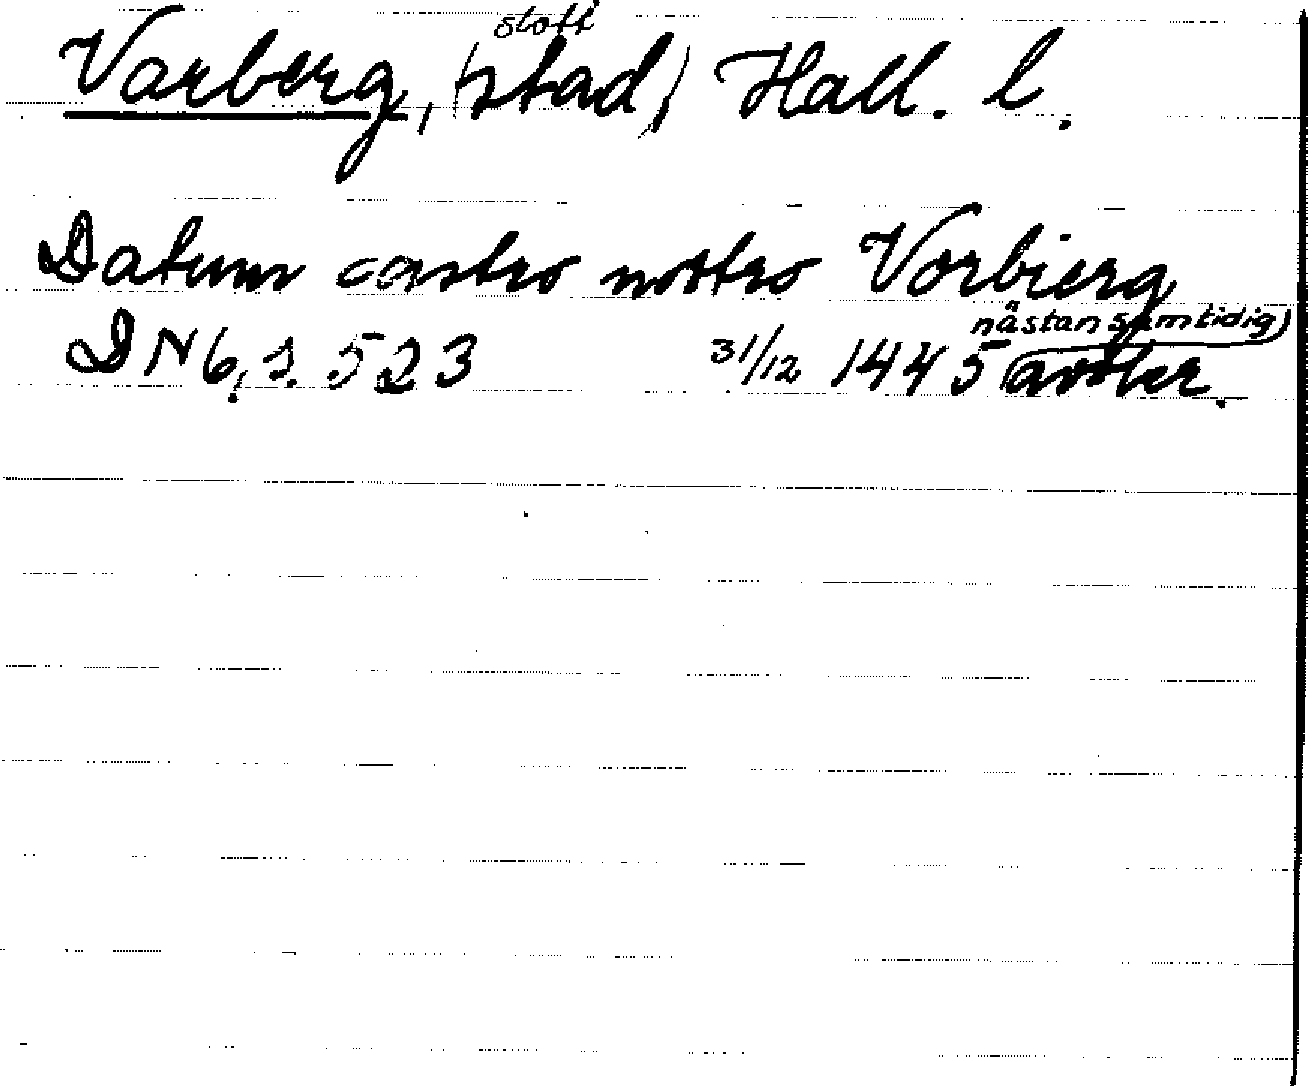 slott
Varberg, (stad) Hall. l.
Datum castro nostro Vorbierg
nästan samtidig)
DN 6, s. 523 31/12 1445 avskr.